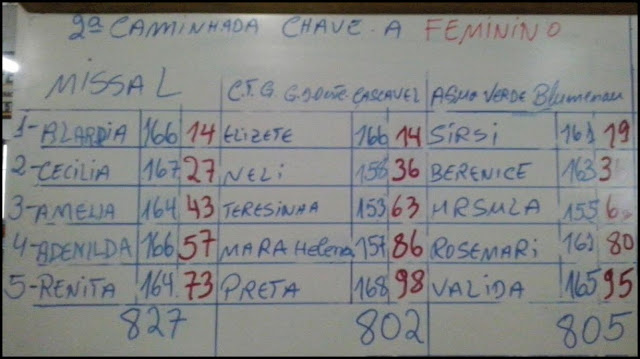 2ª CAMINHADA CHAVE. A FEMININO
MISSAL C.T.G. CASCAVEL VERDE Blumenau
1-ALARDIA 166 14 ELIZETE 166 14 SIRSI 161 19
2-CECILIA 167 27 NELI 158 36 BERENICE 163 3
3-AMELIA 164 43 TERESINHA 153 63 URSULA 155 6
4-ADENILDA 166 57 MARA Helena 157 86 ROSEMARI 161 80
5-RENITA 164 73 PRETA 168 98 VALIDA 165 95
827 802 805